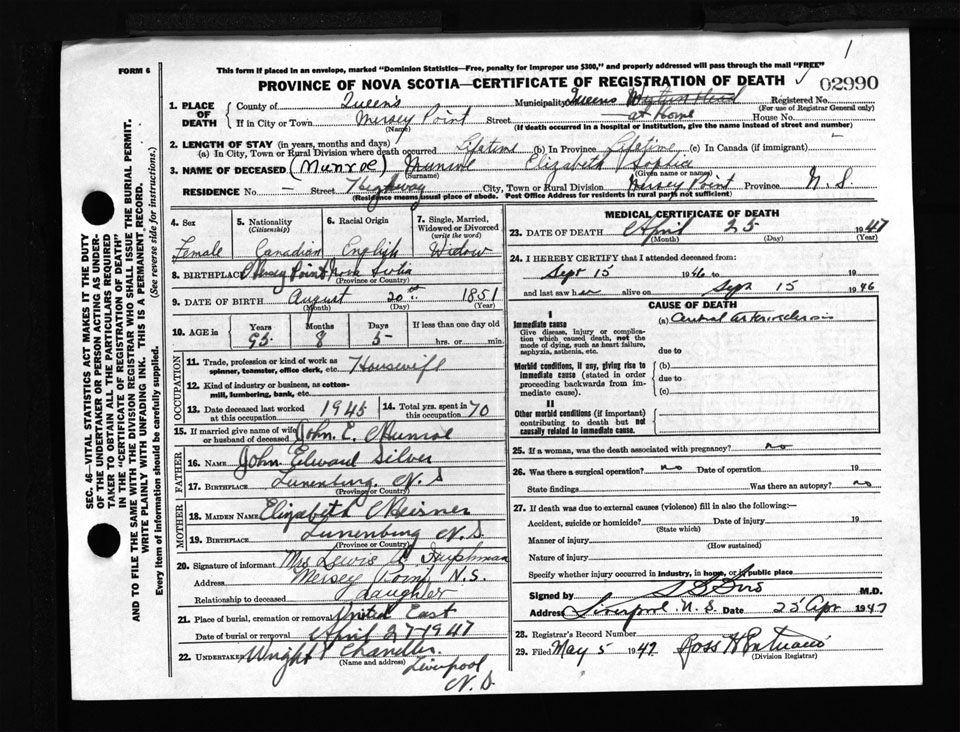 1
FORM 6
This form if placed in an envelope, marked "Dominion Statistics—Free, penalty for improper use $300," and properly addressed will pass through the mail "FREE"
PROVINCE OF NOVA SCOTIA—CERTIFICATE OF REGISTRATION OF DEATH
02990
1. PLACE OF DEATH
County of Queen's Municipality Queens Registered No.
(For use of Registrar General only)
If in City or Town Mersey Point Street at Home House No.
(Name) (If death occurred in a hospital or institution, give the name instead of street and number)
2. LENGTH OF STAY (in years, months and days)
(a) In City, Town or Rural Division where death occurred Lifetime (b) In Province Lifetime (c) In Canada (if immigrant)
3. NAME OF DECEASED (Munroe) Munroe Elizabeth Sophia
(Surname) (Given name or names)
RESIDENCE No. — Street Highway City, Town or Rural Division Mersey Point Province N. S
(Residence means usual place of abode. Post Office Address for residents in rural parts not sufficient)
4. Sex
Female
5. Nationality
(Citizenship)
Canadian
6. Racial Origin
English
7. Single, Married, Widowed or Divorced
(write the word)
Widow
8. BIRTHPLACE Mersey Point Nova Scotia
(Province or Country)
9. DATE OF BIRTH August 20th 1851
(Month) (Day) (Year)
10. AGE in Years Months Days If less than one day old
95 8 5 hrs. or min.
OCCUPATION
11. Trade, profession or kind of work as spinner, teamster, office clerk, etc. Housewife
12. Kind of industry or business, as cotton-mill, lumbering, bank, etc.
13. Date deceased last worked at this occupation 1945
14. Total yrs. spent in this occupation 70
15. If married give name of wife or husband of deceased John. E. Munroe
FATHER
16. Name John Edward Silver
17. Birthplace Lunenburg, N. S
(Province or Country)
MOTHER
18. Maiden Name Elizabeth
19. Birthplace Lunenburg N. S.
(Province or Country)
20. Signature of informant Mrs Lewis
Address Mersey Point, N. S.
Relationship to deceased Daughter
21. Place of burial, cremation or removal United East
Date of burial or removal April 27-1947
22. Undertaker Wright Chandler.
(Name and address) Liverpool
N. S
MEDICAL CERTIFICATE OF DEATH
23. DATE OF DEATH April 25 1947
(Month) (Day) (Year)
24. I HEREBY CERTIFY that I attended deceased from:
Sept 15 1946 to 19
and last saw her alive on Sept 15 1946
CAUSE OF DEATH
I
Immediate cause
Give disease, injury or complication which caused death, not the mode of dying, such as heart failure, asphyxia, asthenia, etc.
(a) arteriosclerosis
due to
Morbid conditions, if any, giving rise to immediate cause (stated in order proceeding backwards from immediate cause).
(b)
due to
(c)
II
Other morbid conditions (if important) contributing to death but not causally related to immediate cause.
25. If a woman, was the death associated with pregnancy? no
26. Was there a surgical operation? no Date of operation 19
State findings Was there an autopsy? no
27. If death was due to external causes (violence) fill in also the following:—
Accident, suicide or homicide? Date of injury 19
(State which)
Manner of injury
(How sustained)
Nature of injury
Specify whether injury occurred in industry, in home, or in public place
Signed by M.D.
Address Liverpool N. S. Date 25 Apr 1947
28. Registrar's Record Number
29. Filed May 5 1947 Ross
(Division Registrar)
SEC. 46—VITAL STATISTICS ACT MAKES IT THE DUTY
OF THE UNDERTAKER OR PERSON ACTING AS UNDER-
TAKER TO OBTAIN ALL THE PARTICULARS REQUIRED
IN THE "CERTIFICATE OF REGISTRATION OF DEATH"
AND TO FILE THE SAME WITH THE DIVISION REGISTRAR WHO SHALL ISSUE THE BURIAL PERMIT.
WRITE PLAINLY WITH UNFADING INK. THIS IS A PERMANENT RECORD.
Every item of information should be carefully supplied. (See reverse side for instructions.)